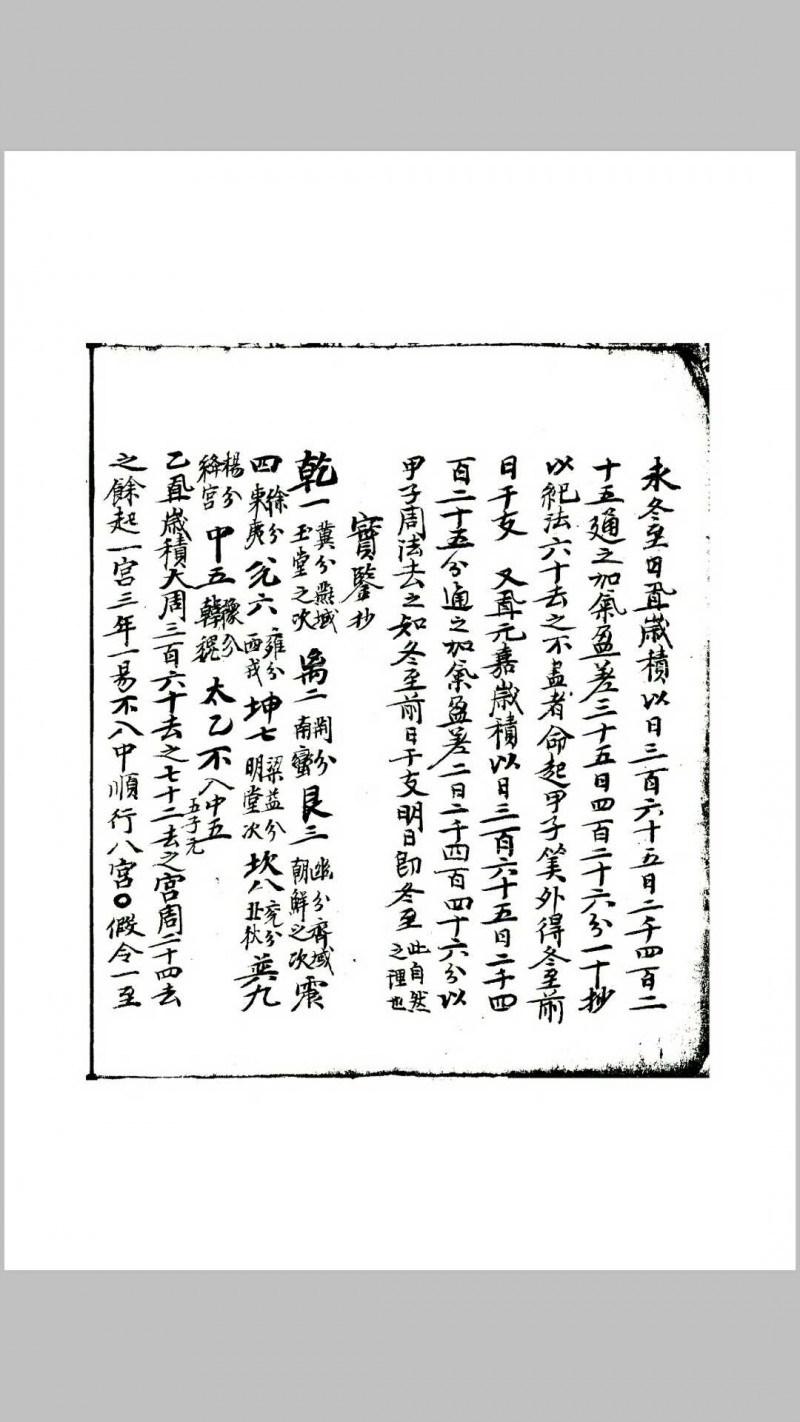 求冬至日置歲積以日三百六十五日二千四百二
十五通之加氣盈差三十五日四百二十六分一十抄
以紀法六十去之不盡者命起甲子筭外得冬至前
日干支 又置元嘉歲積以日三百六十五日二千四
百二十五分通之加氣盈差二日二千四百四十六分以
甲子周法去之知冬至前日干支明日卽冬至 此自然之理也
寶鑒抄
乾一 冀分燕域玉堂之次 离二 荆分南蠻 艮三 幽分齊域朝鮮之次 震
四 徐分東夷 兊六 雍分西戎 坤七 梁益分明堂次 坎八 兖分北狄 巽九
楊分絳宮 中五 豫分韓魏 太乙不入中五 五子元
乙置歲積大周三百六十去之七十二去之宮周二十四去
之餘起一宮三年一易不入中順行八宮〇假令一至